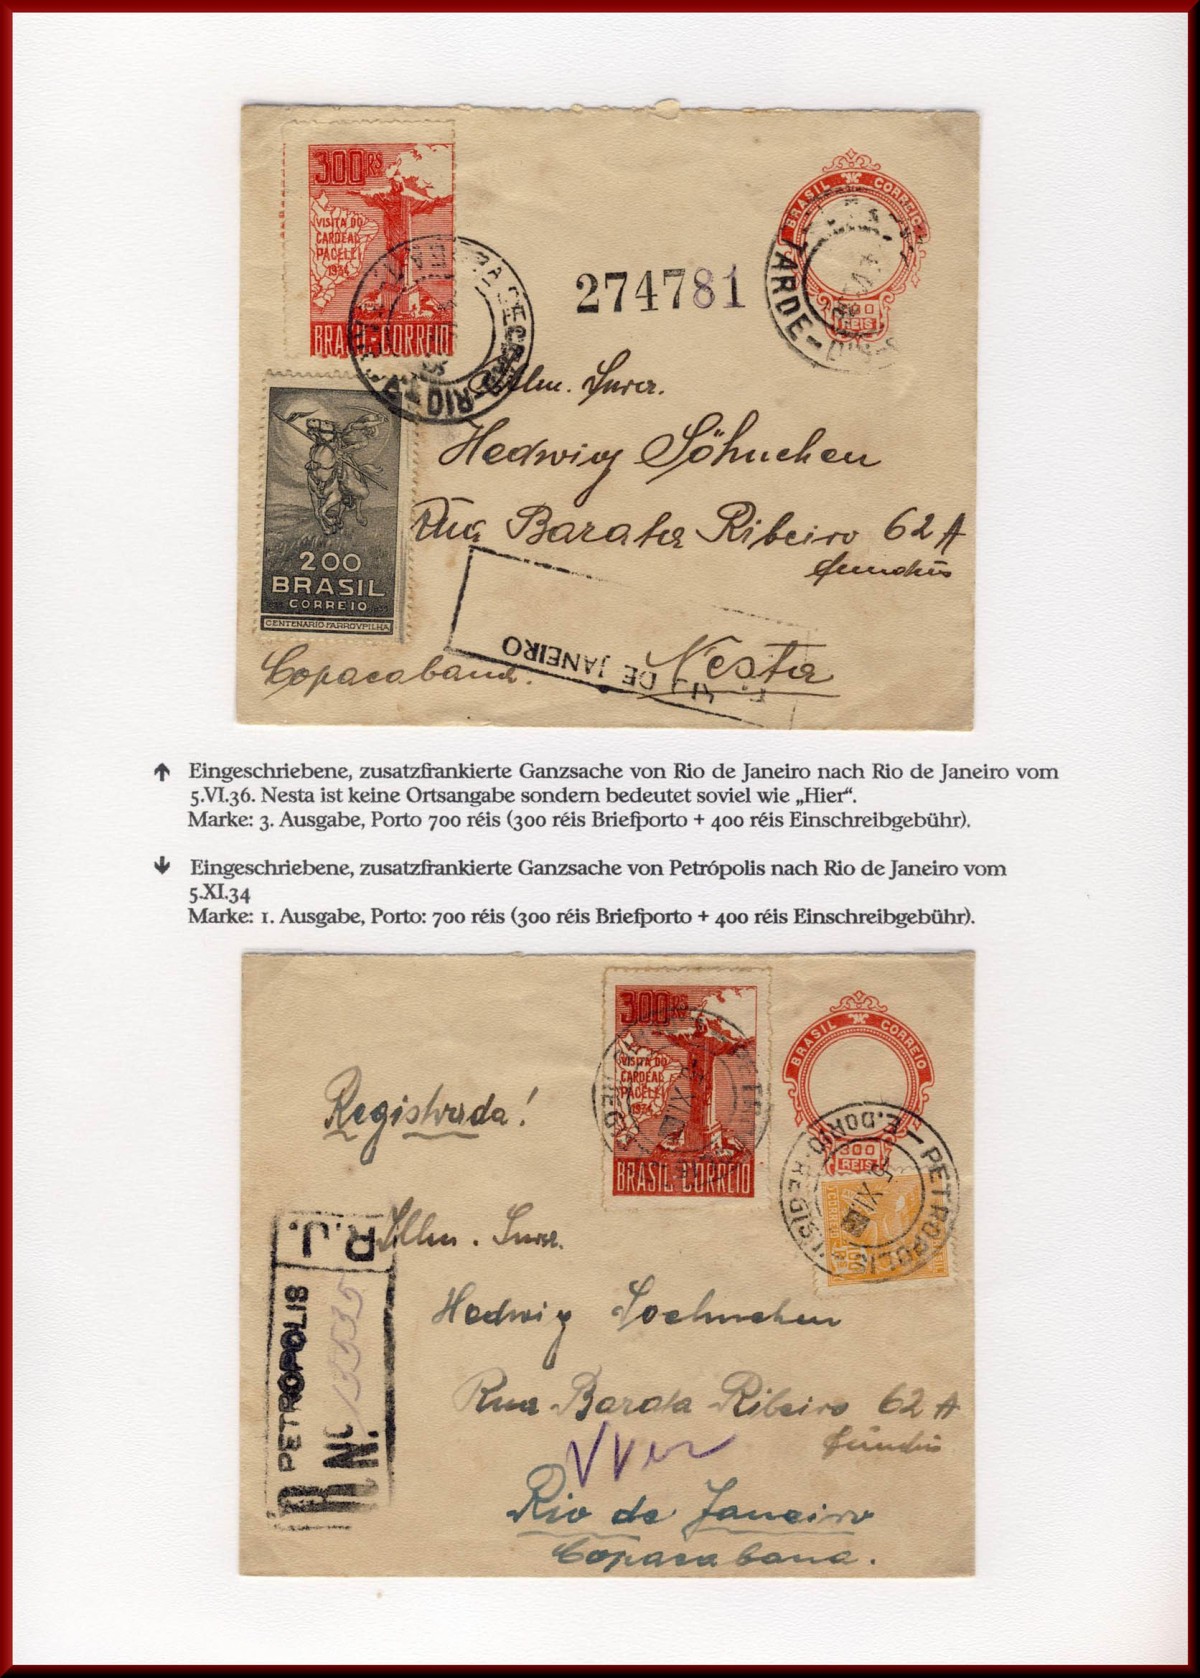 300 RS
VISITA DO
CARDEAL
PACELLI
1934
BRASIL-CORREIO
BRASIL CORREIO
REIS
TARDE
274781
RIO
Illm. Snra.
Hedwig Söhnchen
Rua Barata Ribeiro 62 A
fundos
200
BRASIL
CORREIO
CENTENARIO FARROVPILHA
DE JANEIRO
Nesta
Copacabana.
↑ Eingeschriebene, zusatzfrankierte Ganzsache von Rio de Janeiro nach Rio de Janeiro vom
5.VI.36. Nesta ist keine Ortsangabe sondern bedeutet soviel wie „Hier“.
Marke: 3. Ausgabe, Porto 700 réis (300 réis Briefporto + 400 réis Einschreibgebühr).
↓ Eingeschriebene, zusatzfrankierte Ganzsache von Petrópolis nach Rio de Janeiro vom
5.XI.34
Marke: 1. Ausgabe, Porto: 700 réis (300 réis Briefporto + 400 réis Einschreibgebühr).
300 RS
VISITA DO
CARDEAL
PACELLI
1934
BRASIL-CORREIO
BRASIL CORREIO
300
REIS
PETROPOLIS
E. DO RIO
5 XI
Registrada!
R.J.
PETROPOLIS
R N.
Illm. Snra.
Hedwig Soehnchen
Rua Barata Ribeiro 62 A
fundos
Rio de Janeiro
Copacabana.